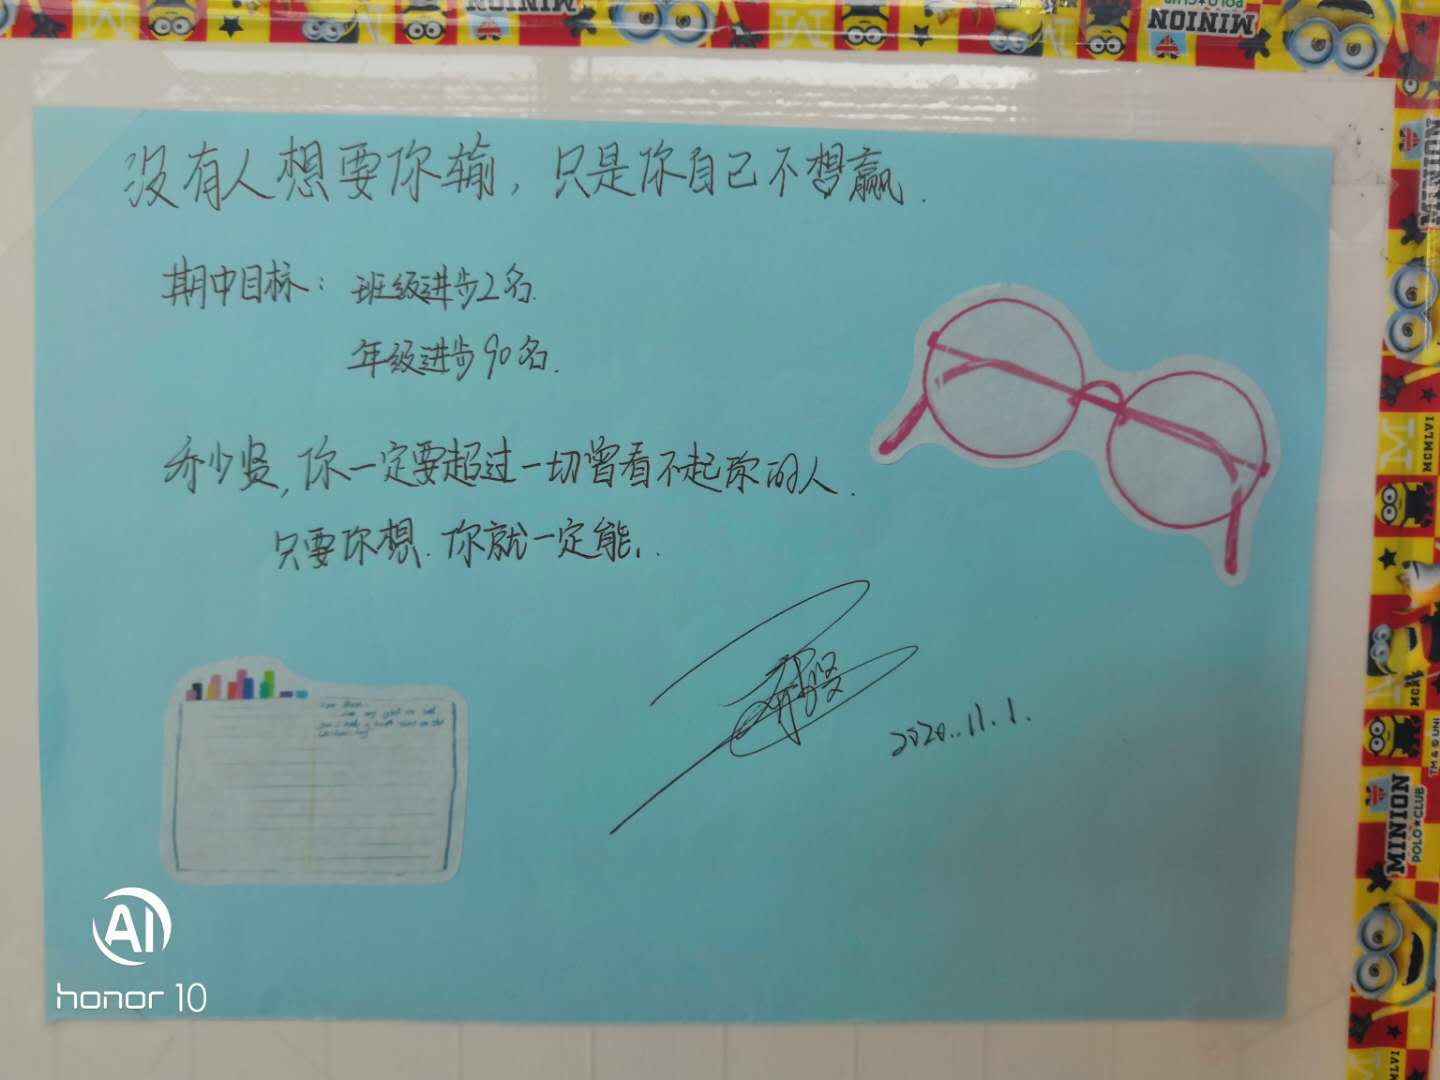 MINION
POLO★CLUB
MINION
没有人想要你输，只是你自己不想赢.
期中目标：班级进步2名.
年级进步90名.
乔少贤,你一定要超过一切曾看不起你的人.
只要你想.你就一定能.
2020.11.1.
MINION
MINION
M
MCMLVI
TM & © UNI
MINION
POLO★CLUB
AI
honor 10